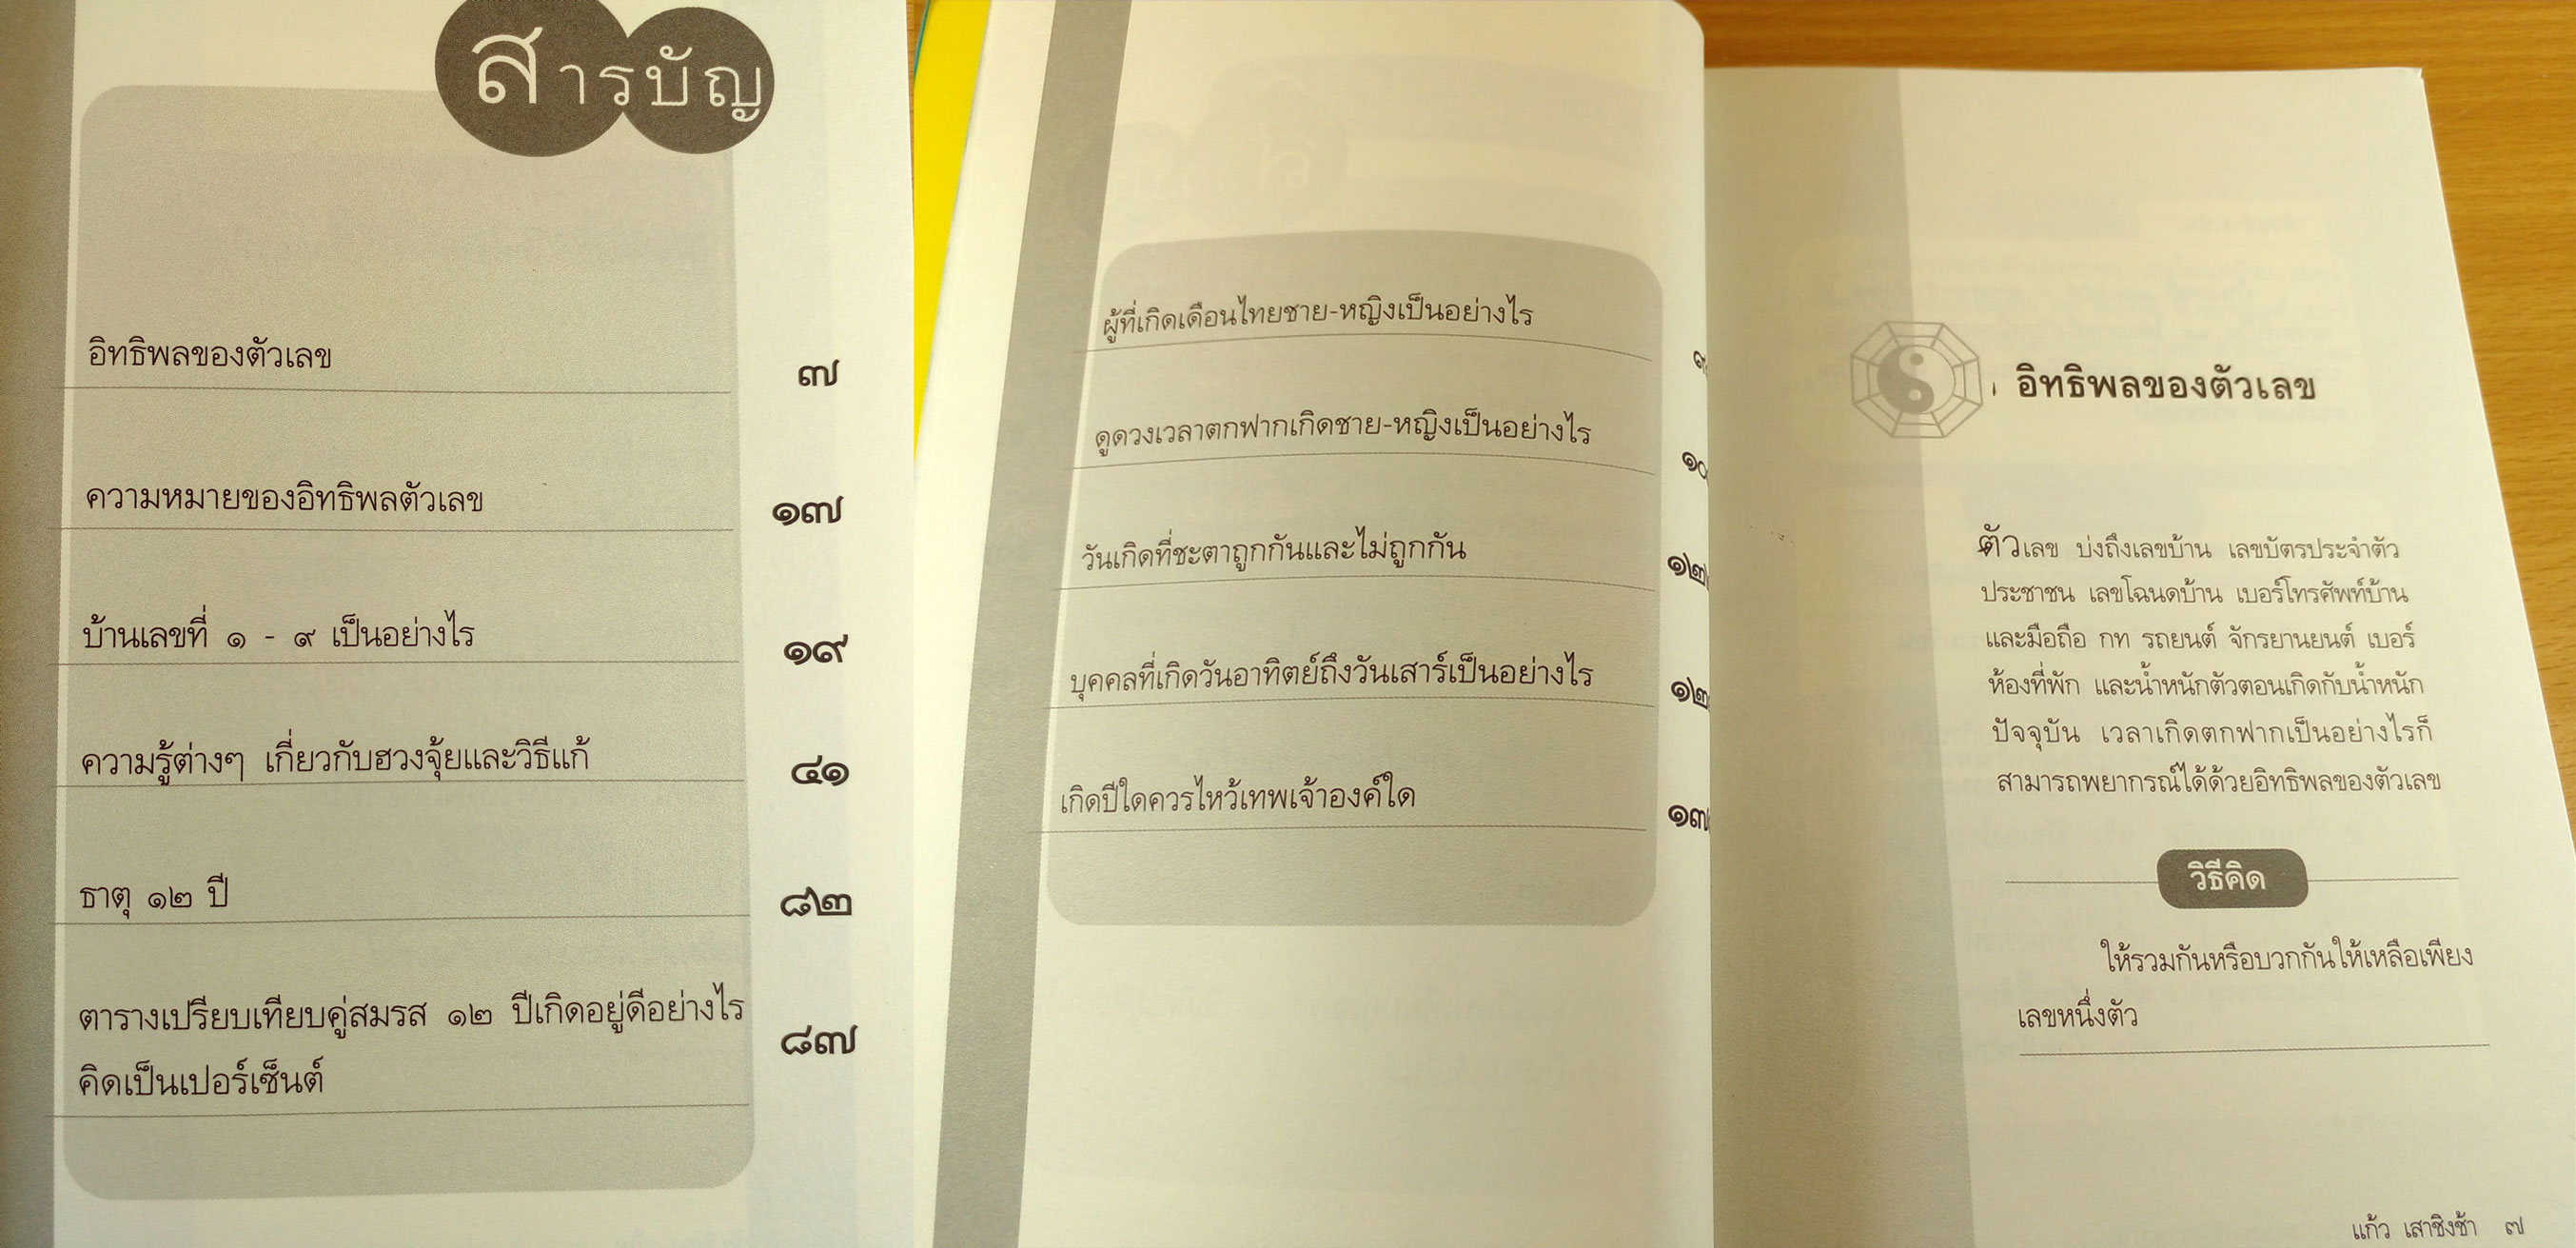 สารบัญ
อิทธิพลของตัวเลข ๗
ความหมายของอิทธิพลตัวเลข ๑๗
บ้านเลขที่ ๑ - ๙ เป็นอย่างไร ๑๙
ความรู้ต่างๆ เกี่ยวกับฮวงจุ้ยและวิธีแก้ ๔๑
ธาตุ ๑๒ ปี ๘๒
ตารางเปรียบเทียบคู่สมรส ๑๒ ปีเกิดอยู่ดีอย่างไร
คิดเป็นเปอร์เซ็นต์ ๘๗
ผู้ที่เกิดเดือนไทยชาย-หญิงเป็นอย่างไร
ดูดวงเวลาตกฟากเกิดชาย-หญิงเป็นอย่างไร
วันเกิดที่ชะตาถูกกันและไม่ถูกกัน
บุคคลที่เกิดวันอาทิตย์ถึงวันเสาร์เป็นอย่างไร
เกิดปีใดควรไหว้เทพเจ้าองค์ใด
อิทธิพลของตัวเลข
ตัวเลข บ่งถึงเลขบ้าน เลขบัตรประจำตัว
ประชาชน เลขโฉนดบ้าน เบอร์โทรศัพท์บ้าน
และมือถือ กท รถยนต์ จักรยานยนต์ เบอร์
ห้องที่พัก และน้ำหนักตัวตอนเกิดกับน้ำหนัก
ปัจจุบัน เวลาเกิดตกฟากเป็นอย่างไรก็
สามารถพยากรณ์ได้ด้วยอิทธิพลของตัวเลข
วิธีคิด
ให้รวมกันหรือบวกกันให้เหลือเพียง
เลขหนึ่งตัว
แก้ว เสาชิงช้า ๗